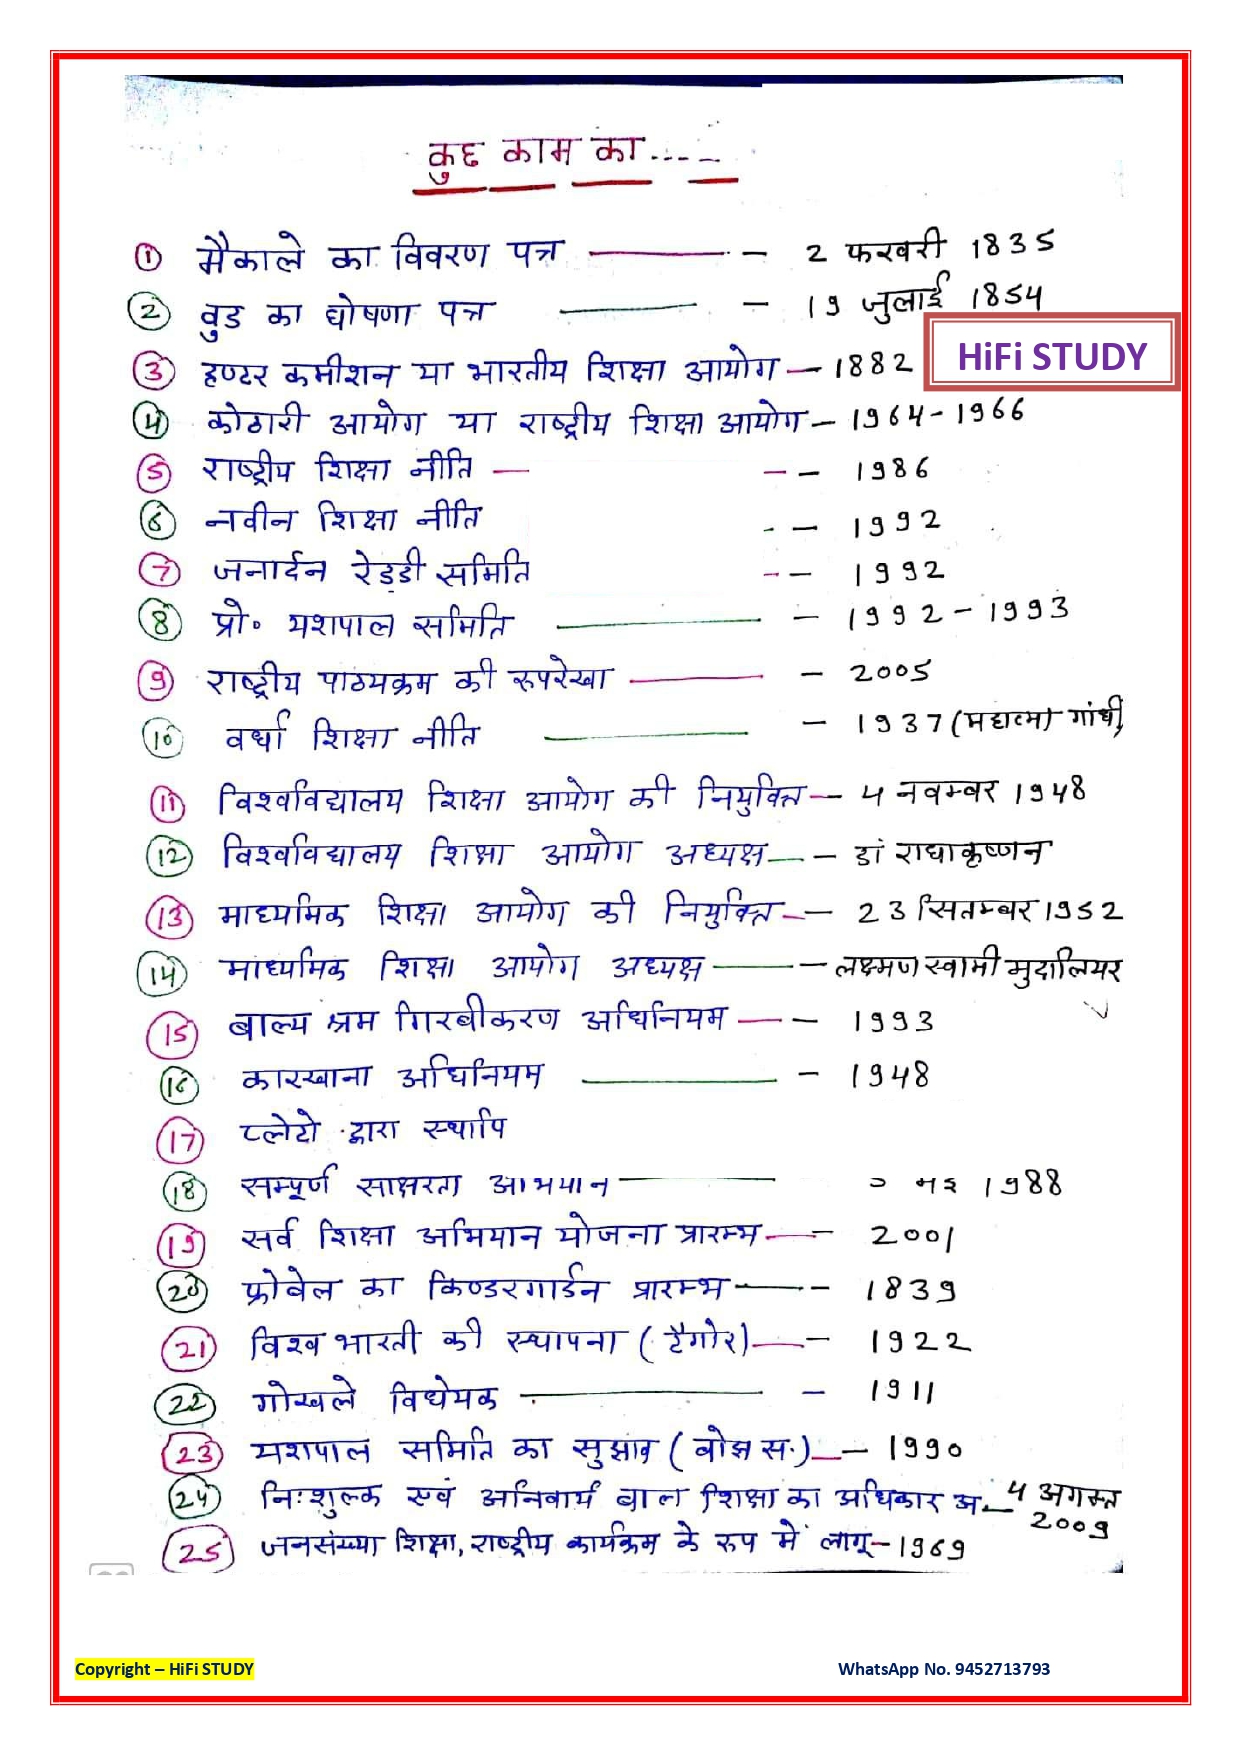 कुछ काम का.....
① मैकाले का विवरण पत्र —— - 2 फरवरी 1835
② वुड का घोषणा पत्र —— - 19 जुलाई 1854
HiFi STUDY
③ हण्टर कमीशन या भारतीय शिक्षा आयोग - 1882
④ कोठारी आयोग या राष्ट्रीय शिक्षा आयोग - 1964-1966
⑤ राष्ट्रीय शिक्षा नीति — - - 1986
⑥ नवीन शिक्षा नीति - - 1992
⑦ जनार्दन रेड्डी समिति - - 1992
⑧ प्रो॰ यशपाल समिति —— - 1992-1993
⑨ राष्ट्रीय पाठ्यक्रम की रुपरेखा —— - 2005
⑩ वर्धा शिक्षा नीति —— - 1937 (महात्मा गांधी)
⑪ विश्वविद्यालय शिक्षा आयोग की नियुक्ति — 4 नवम्बर 1948
⑫ विश्वविद्यालय शिक्षा आयोग अध्यक्ष — - डां राधाकृष्णन
⑬ माध्यमिक शिक्षा आयोग की नियुक्ति — - 23 सितम्बर 1952
⑭ माध्यमिक शिक्षा आयोग अध्यक्ष —— - लक्ष्मण स्वामी मुदालियर
⑮ बाल्य श्रम गिरबीकरण अधिनियम — - 1993
⑯ कारखाना अधिनियम —— - 1948
⑰ प्लेटो द्वारा स्थापि
⑱ सम्पूर्ण साक्षरता अभियान —— मई 1988
⑲ सर्व शिक्षा अभियान योजना प्रारम्भ — - 2001
⑳ फ्रोवेल का किण्डरगार्डन प्रारम्भ — - 1839
㉑ विश्व भारती की स्थापना (टैगोर) — - 1922
㉒ गोखले विधेयक —— - 1911
㉓ यशपाल समिति का सुझाव (बोझ स.) — - 1990
㉔ निःशुल्क एवं अनिवार्य बाल शिक्षा का अधिकार अ. — 4 अगस्त
2009
㉕ जनसंख्या शिक्षा, राष्ट्रीय कार्यक्रम के रुप में लागू - 1969
Copyright – HiFi STUDY WhatsApp No. 9452713793